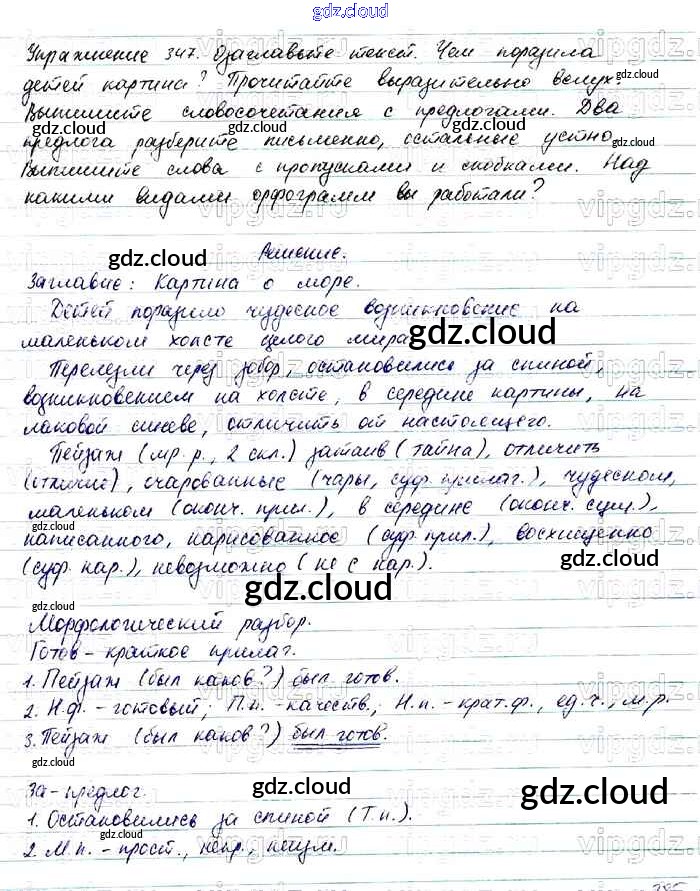 gdz.cloud
Упражнение 347. Озаглавьте текст. Чем поразила
детей картина? Прочитайте выразительно вслух.
Выпишите словосочетания с предлогами. Два
gdz.cloud gdz.cloud gdz.cloud
предлога разберите письменно, остальные устно.
Выпишите слова с пропусками и скобками. Над
какими видами орфограмм вы работали?
Решение.
gdz.cloud
Заглавие: Картина о море.
Детей поразило чудесное возникновение на
маленьком холсте целого мира.
gdz.cloud
Перелезли через забор, остановились за спиной,
возникновением на холсте, в середине картины, на
лаковой синеве, отличить от настоящего.
Пейзаж (мр. р., 2 скл.) затаив (тайна), отличить
gdz.cloud
(отличие), очарованные (чары, суф. прилаг.), чудесном,
маленьком (оконч. прил.), в середине (оконч. сущ.),
gdz.cloud
написанного, нарисованное (суф. прил.), восхищенно
(суф. нар.), невозможно (не с нар.).
gdz.cloud
gdz.cloud
gdz.cloud
Морфологический разбор.
Готов - краткое прилаг.
1. Пейзаж (был каков?) был готов.
gdz.cloud
2. Н.ф. - готовый; П.п. - качеств.; Н.п. - крат.ф., ед.ч., м.р.
3. Пейзаж (был каков?) был готов.
gdz.cloud
За - предлог.
gdz.cloud
1. Остановились за спиной (Т.п.).
gdz.cloud
2. М.п. - прост., непр., неизм.